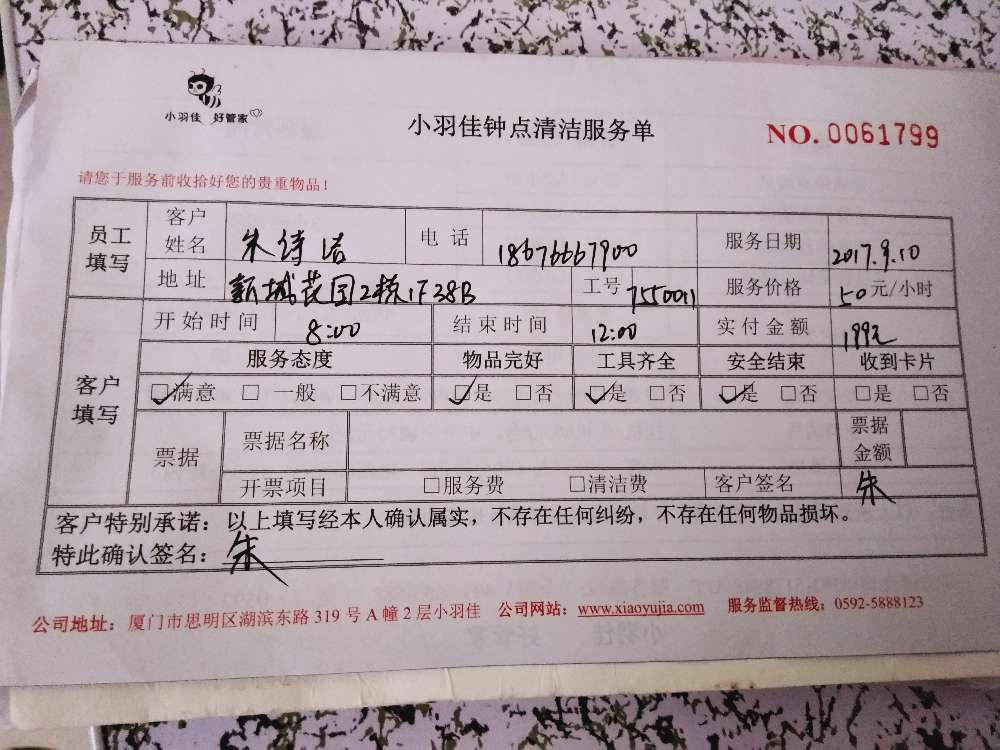 小羽佳 好管家
小羽佳钟点清洁服务单
NO. 0061799
请您于服务前收拾好您的贵重物品！
员工填写 客户姓名 朱诗洁 电话 18676667900 服务日期 2017.9.10
地址 新城花园2栋1F38B 工号 7550011 服务价格 50元/小时
客户填写 开始时间 8:00 结束时间 12:00 实付金额 199元
服务态度 物品完好 工具齐全 安全结束 收到卡片
☑满意 □一般 □不满意 ☑是 □否 ☑是 □否 ☑是 □否 □是 □否
票据 票据名称 票据金额
开票项目 □服务费 □清洁费 客户签名 朱
客户特别承诺：以上填写经本人确认属实，不存在任何纠纷，不存在任何物品损坏。
特此确认签名：朱
公司地址：厦门市思明区湖滨东路 319 号 A 幢 2 层小羽佳 公司网站：www.xiaoyujia.com 服务监督热线：0592-5888123